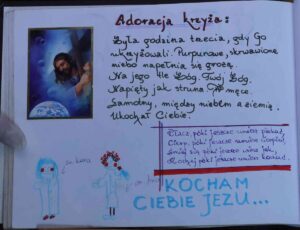 Adoracja krzyża:
Była godzina trzecia, gdy Go
ukrzyżowali. Purpurowe, skrwawione
niebo napełnia się grozą.
Na jego tle Bóg. Twój Bóg.
Napięty jak struna w męce.
Samotny, między niebem a ziemią.
Ukochał Ciebie.
Płacz, póki jeszcze umiesz płakać,
Cierp, póki jeszcze umiesz cierpieć,
póki jeszcze
Kochaj póki jeszcze umiesz kochać.
KOCHAM
CIEBIE JEZU...